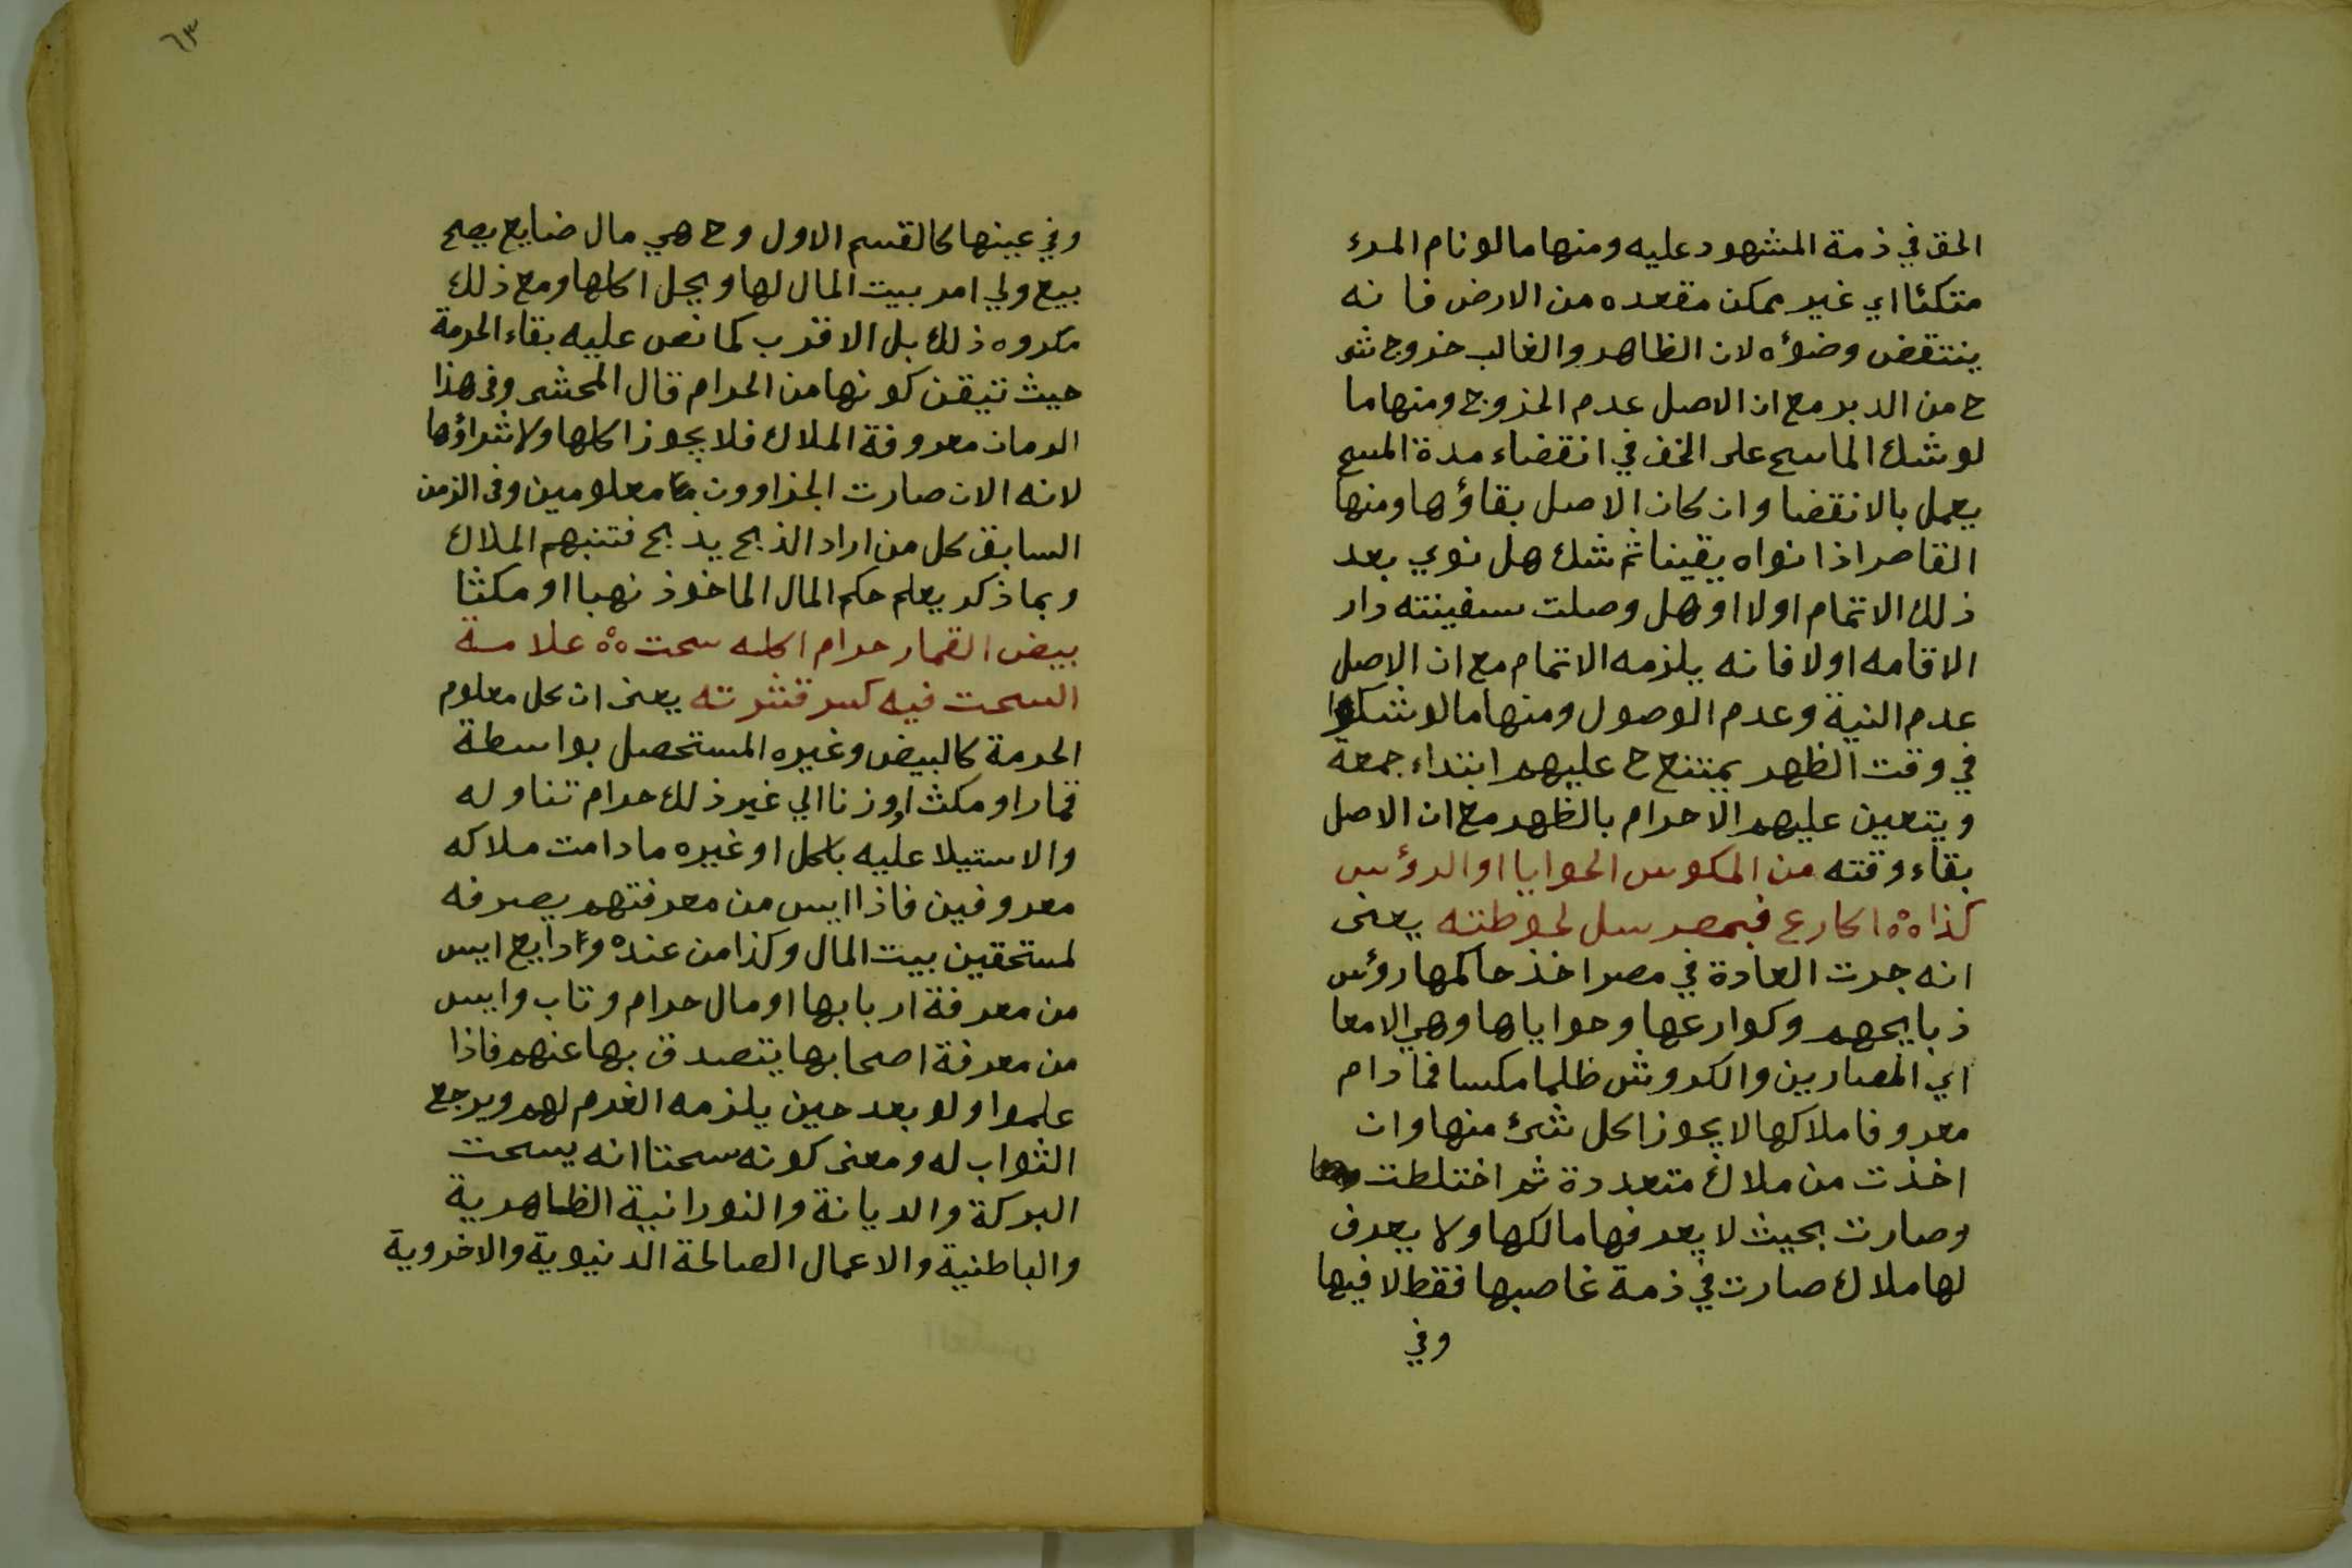 الحق في ذمة المشهود عليه ومنها مالو نام المرء
متكئا اي غير ممكن مقعده من الارض فانه
ينتقض وضؤه لان الظاهر والغالب خروج شى
ح من الدبر مع ان الاصل عدم الخروج ومنها ما
لو شك الماسح على الخف في انقضاء مدة المسح
يعمل بالانقضا وان كان الاصل بقاؤها ومنها
القاصر اذا نواه يقينا ثم شك هل نوي بعد
ذلك الاتمام اولا او هل وصلت سفينته دار
الاقامه اولا فانه يلزمه الاتمام مع ان الاصل
عدم النية وعدم الوصول ومنها مالو شكوا
في وقت الظهر يمتنع ح عليهم ابتداء جمعة
ويتعين عليهم الاحرام بالظهر مع ان الاصل
بقاء وقته من المكوس الحوايا او الرؤس
كذا ٥٥ اكارع فبمصر سل لحوطته يعنى
انه جرت العادة في مصر اخذ حاكمها رؤس
ذبايحهم وكوارعها وحواياها وهي الامعا
اي المصارين والكروش ظلما مكسا فمادام
معروفا ملاكها لا يجوز اكل شئ منها وان
اخذت من ملاك متعددة ثم اختلطت
وصارت بحيث لا يعرفها مالكها ولا يعرف
لها ملاك صارت في ذمة غاصبها فقط لا فيها
وفي
٦٣
وفي عينها كالقسم الاول وح هي مال ضايع يصح
بيع ولي امر بيت المال لها ويحل اكلها ومع ذلك
مكروه ذلك بل الاقرب كما نص عليه بقاء الحرمة
حيث تيقن كونها من الحرام قال المحشى وفى هذا
الرمان معروفة الملاك فلا يجوز اكلها ولا شراؤها
لانه الان صارت الجزاوون معلومين وفى الزمن
السابق كل من اراد الذبح يذبح فتنبهم الملاك
وبما ذكر يعلم حكم المال الماخوذ نهبا او مكثا
بيض القمار حرام اكله سحت ٥٥ علامة
السحت فيه كسر قشرته يعنى ان كل معلوم
الحرمة كالبيض وغيره المستحصل بواسطة
قمار او مكث او زنا الي غير ذلك حرام تناوله
والاستيلا عليه باكل او غيره ما دامت ملاكه
معروفين فاذا ايس من معرفتهم يصرفه
لمستحقين بيت المال وكذا من عنده ودايع ايس
من معرفة اربابها او مال حرام وتاب وايس
من معرفة اصحابها يتصدق بها عنهم فاذا
علموا ولو بعد حين يلزمه الغرم لهم ويرجع
الثواب له ومعنى كونه سحتا انه يسحت
البركة والديانة والنورانية الظاهرية
والباطنية والاعمال الصالحة الدنيوية والاخروية